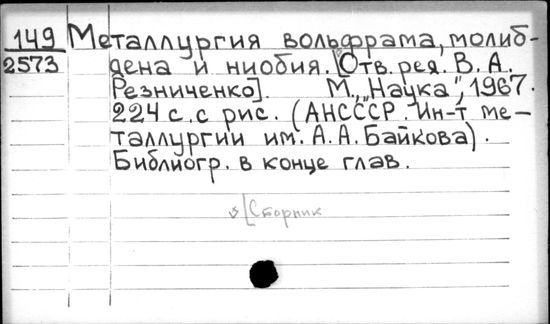 149 Металлургия вольфрама, молиб-
2573 дена и ниобия. [Отв. ред. В. А.
Резниченко]. М., "Наука", 1967.
224 с. с рис. (АНСССР. Ин-т ме-
таллургии им. А. А. Байкова).
Библиогр. в конце глав.
[Сборник